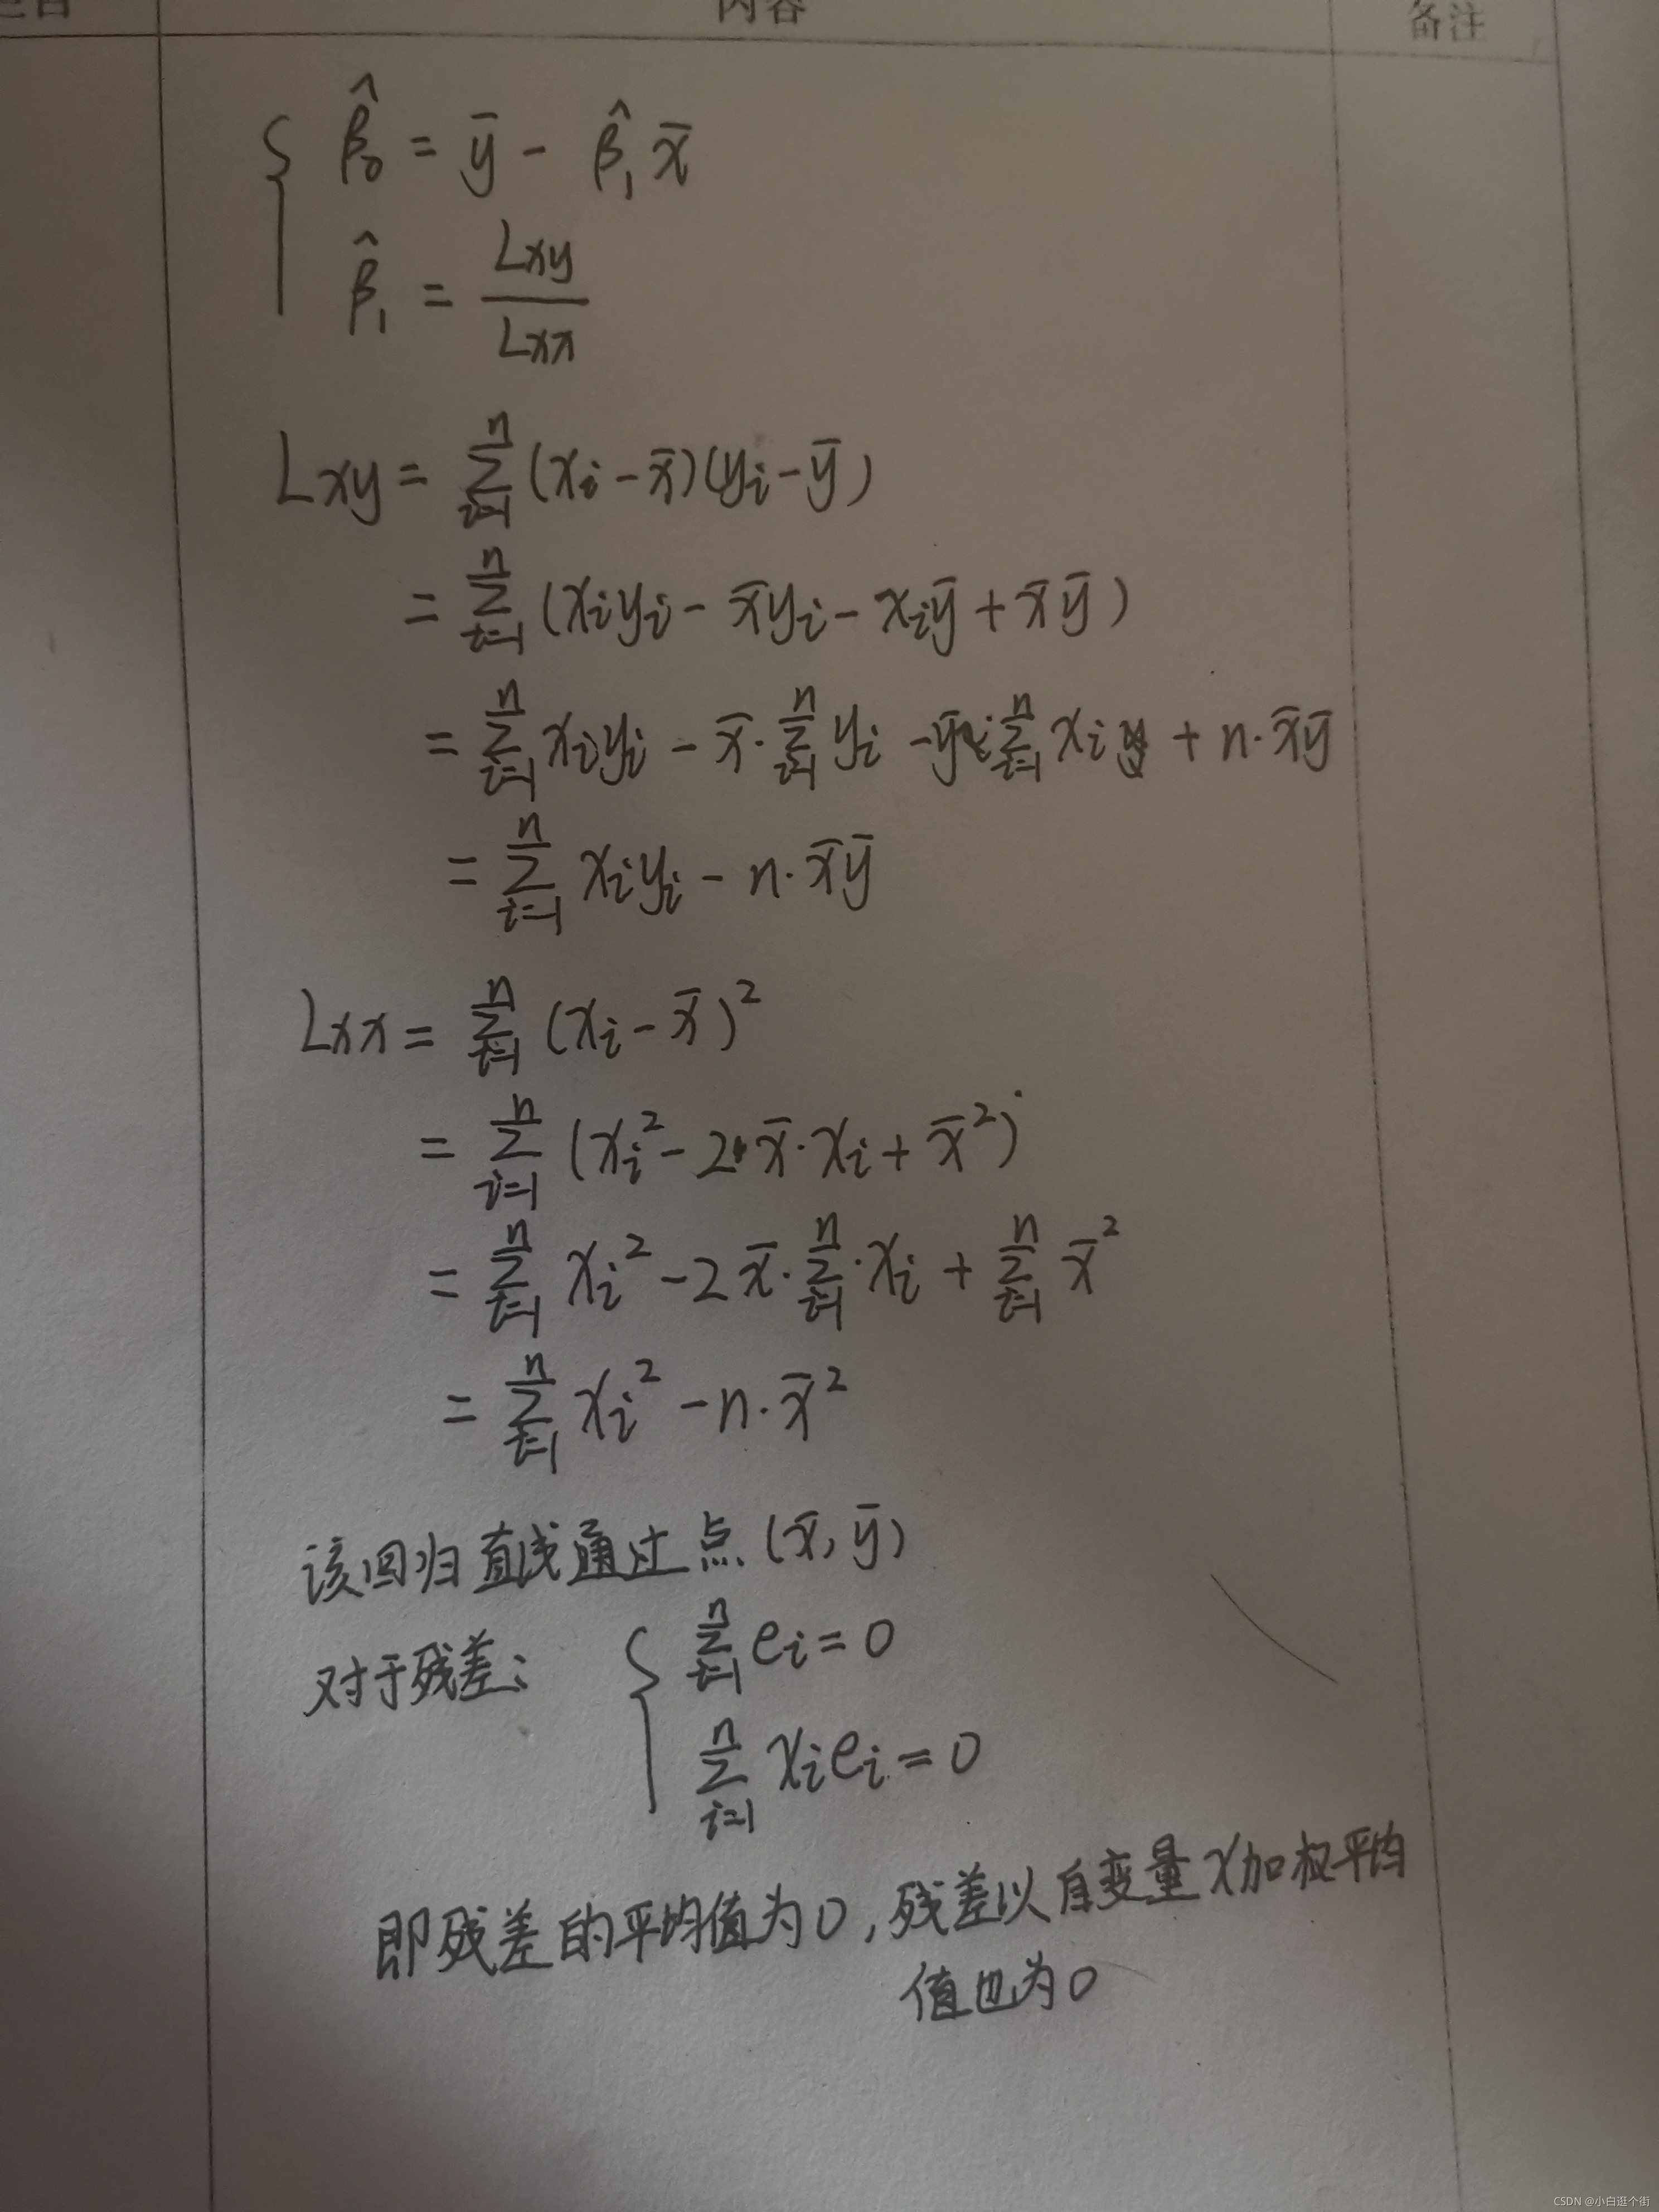 内容
备注
{ β̂₀ = ȳ - β̂₁x̄
β̂₁ = Lxy / Lxx
Lxy = ∑ⁿᵢ₌₁ (xᵢ - x̄)(yᵢ - ȳ)
= ∑ⁿᵢ₌₁ (xᵢyᵢ - x̄yᵢ - xᵢȳ + x̄ȳ)
= ∑ⁿᵢ₌₁ xᵢyᵢ - x̄·∑ⁿᵢ₌₁ yᵢ - ȳ·∑ⁿᵢ₌₁ xᵢ + n·x̄ȳ
= ∑ⁿᵢ₌₁ xᵢyᵢ - n·x̄ȳ
Lxx = ∑ⁿᵢ₌₁ (xᵢ - x̄)²
= ∑ⁿᵢ₌₁ (xᵢ² - 2·x̄·xᵢ + x̄²)
= ∑ⁿᵢ₌₁ xᵢ² - 2x̄·∑ⁿᵢ₌₁·xᵢ + ∑ⁿᵢ₌₁ x̄²
= ∑ⁿᵢ₌₁ xᵢ² - n·x̄²
该回归直线通过点(x̄, ȳ)
对于残差: { ∑ⁿᵢ₌₁ eᵢ = 0
∑ⁿᵢ₌₁ xᵢeᵢ = 0
即残差的平均值为0,残差以自变量x加权平均
值也为0
CSDN @小白逛个街